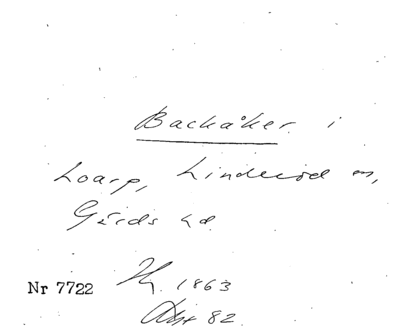 Backåker i
Loarp, Linderöd sn,
Gärds hd.
Nr 7722 1863
82